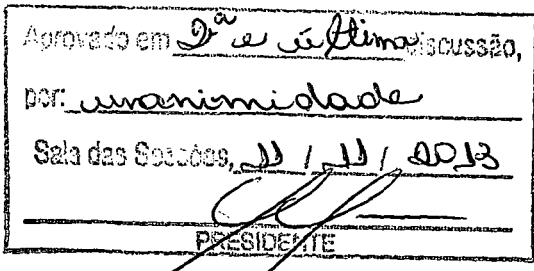 Aprovado em 2ª e última discussão,
por: unanimidade
Sala das Sessões, 11 / 11 / 2013
PRESIDENTE